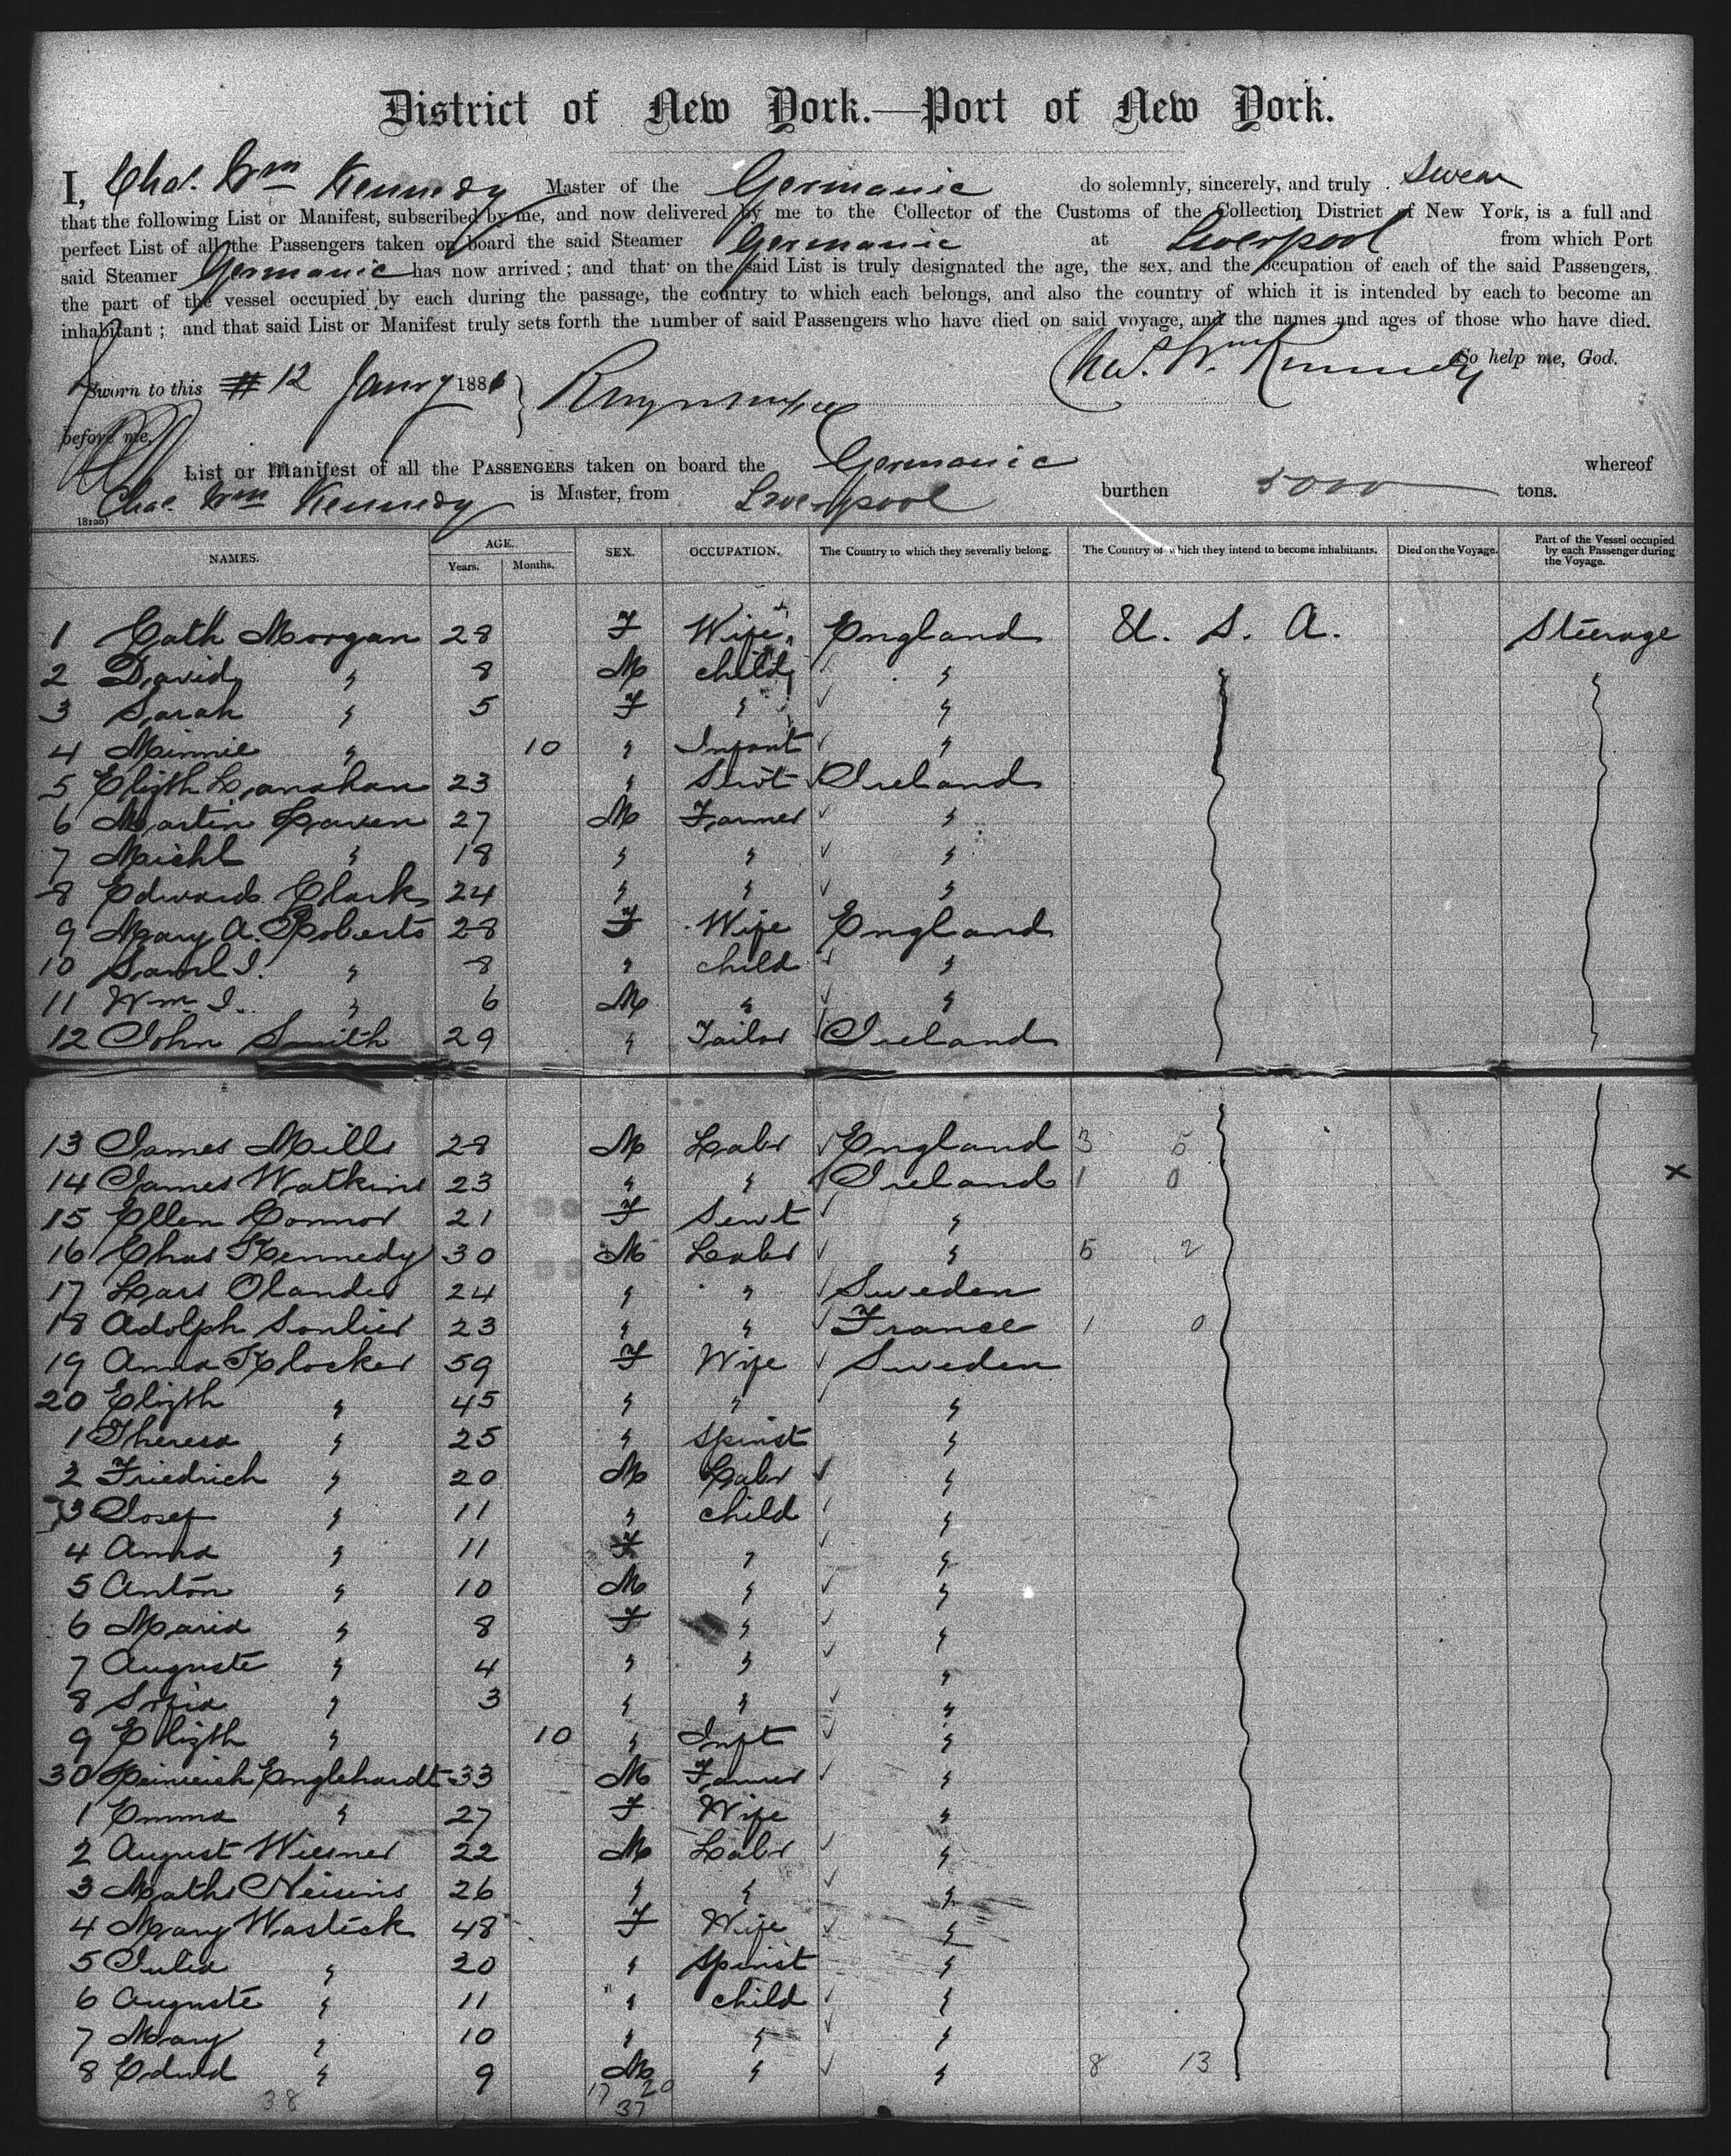 District of New York.—Port of New York.
I, Chas. Wm Kennedy Master of the Germanic do solemnly, sincerely, and truly swear
that the following List or Manifest, subscribed by me, and now delivered by me to the Collector of the Customs of the Collection District of New York, is a full and
perfect List of all the Passengers taken on board the said Steamer Germanic at Liverpool from which Port
said Steamer Germanic has now arrived; and that on the said List is truly designated the age, the sex, and the occupation of each of the said Passengers,
the part of the vessel occupied by each during the passage, the country to which each belongs, and also the country of which it is intended by each to become an
inhabitant; and that said List or Manifest truly sets forth the number of said Passengers who have died on said voyage, and the names and ages of those who have died.
So help me, God.
Sworn to this 12 Jany 1881 Chas. Wm Kennedy
before me,
List or Manifest of all the PASSENGERS taken on board the Germanic whereof
Chas. Wm Kennedy is Master, from Liverpool burthen 5000 tons.
NAMES. AGE. Years. Months. SEX. OCCUPATION. The Country to which they severally belong. The Country of which they intend to become inhabitants. Died on the Voyage. Part of the Vessel occupied by each Passenger during the Voyage.
1 Cath Morgan 28 F Wife England U. S. A. Steerage
2 David " 8 M child "
3 Sarah " 5 F " "
4 Minnie " 10 " Infant "
5 Elizth Lanahan 23 " Servt Ireland
6 Martin Laven 27 M Farmer "
7 Michl " 18 " " "
8 Edward Clark 24 " " "
9 Mary A. Roberts 28 F Wife England
10 Saml I. " 8 " child "
11 Wm I. " 6 M " "
12 John Smith 29 " Tailor Ireland
13 James Mills 28 M Labr England 3 5
14 James Watkins 23 " " Ireland 1 0 x
15 Ellen Connor 21 F Servt "
16 Chas Kennedy 30 M Labr " 5 2
17 Lars Olander 24 " " Sweden
18 Adolph Soulier 23 " " France 1 0
19 Anna Klocker 59 F Wife Sweden
20 Elizth " 45 " " "
1 Theresa " 25 " Spinst "
2 Friedrich " 20 M Labr "
3 Josef " 11 " child "
4 Anna " 11 F " "
5 Anton " 10 M " "
6 Maria " 8 F " "
7 Auguste " 4 " " "
8 Sofia " 3 " " "
9 Elizth " 10 " Inft "
30 Heinrich Englehardt 33 M Farmer "
1 Emma " 27 F Wife "
2 August Wiesner 22 M Labr "
3 Maths Neisins 26 " " "
4 Mary Wasteck 48 F Wife "
5 Julia " 20 " Spinst "
6 Auguste " 11 " child "
7 Mary " 10 " " "
8 Edwd " 9 M " " 8 13
38 17 20
37